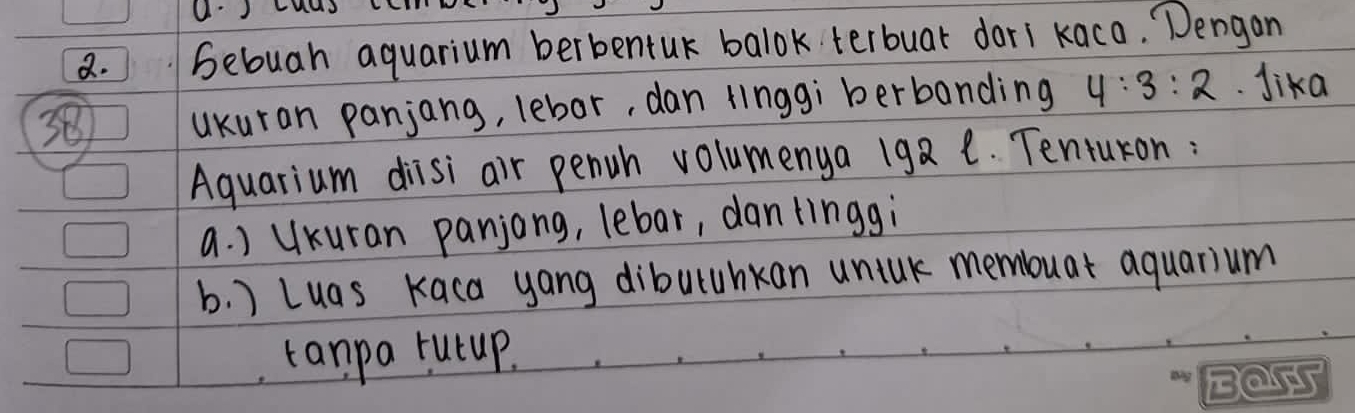 2. Sebuah aquarium berbentuk balok terbuat dari kaca. Dengan
38 ukuran panjang, lebar, dan tinggi berbanding 4:3:2. Jika
Aquarium diisi air penuh volumenya 192 l. Tentukan:
a.) Ukuran panjang, lebar, dan tinggi
b.) Luas kaca yang dibutuhkan untuk membuat aquarium
tanpa tutup.
BOSS